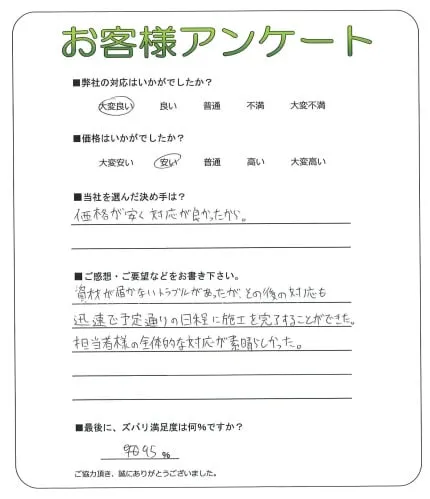 お客様アンケート
■弊社の対応はいかがでしたか？
大変良い 良い 普通 不満 大変不満
■価格はいかがでしたか？
大変安い 安い 普通 高い 大変高い
■当社を選んだ決め手は？
価格が安く対応が良かったから。
■ご感想・ご要望などをお書き下さい。
資材が届かないトラブルがあったが、その後の対応も
迅速で予定通りの日程に施工を完了することができた。
担当者様の全体的な対応が素晴らしかった。
■最後に、ズバリ満足度は何%ですか？
95 %
ご協力頂き、誠にありがとうございました。